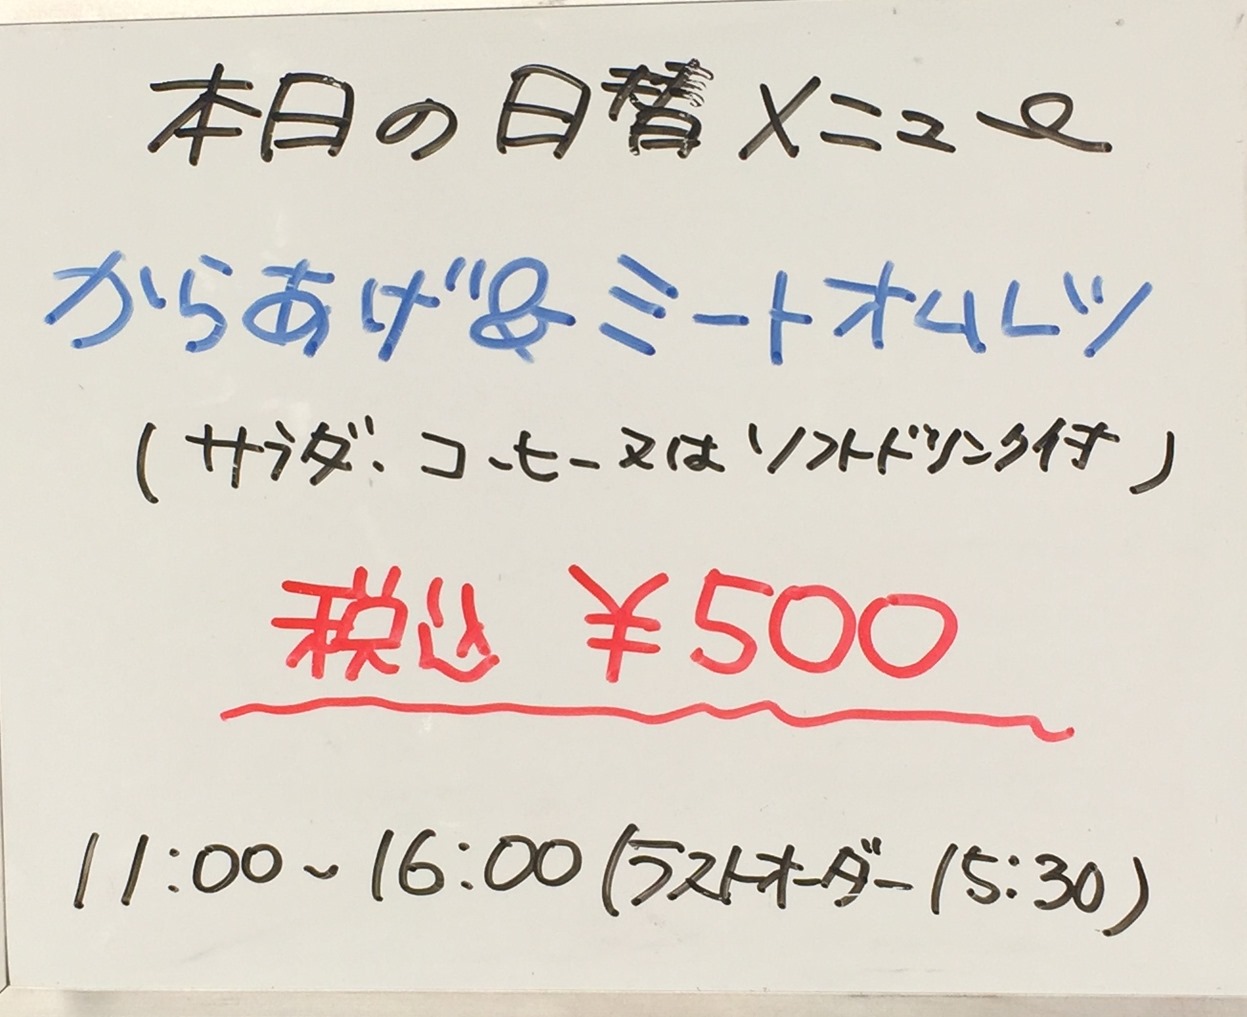 本日の日替メニュー
からあげ&ミートオムレツ
(サラダ、コーヒー又はソフトドリンク付)
税込 ¥500
11:00~16:00(ラストオーダー15:30)